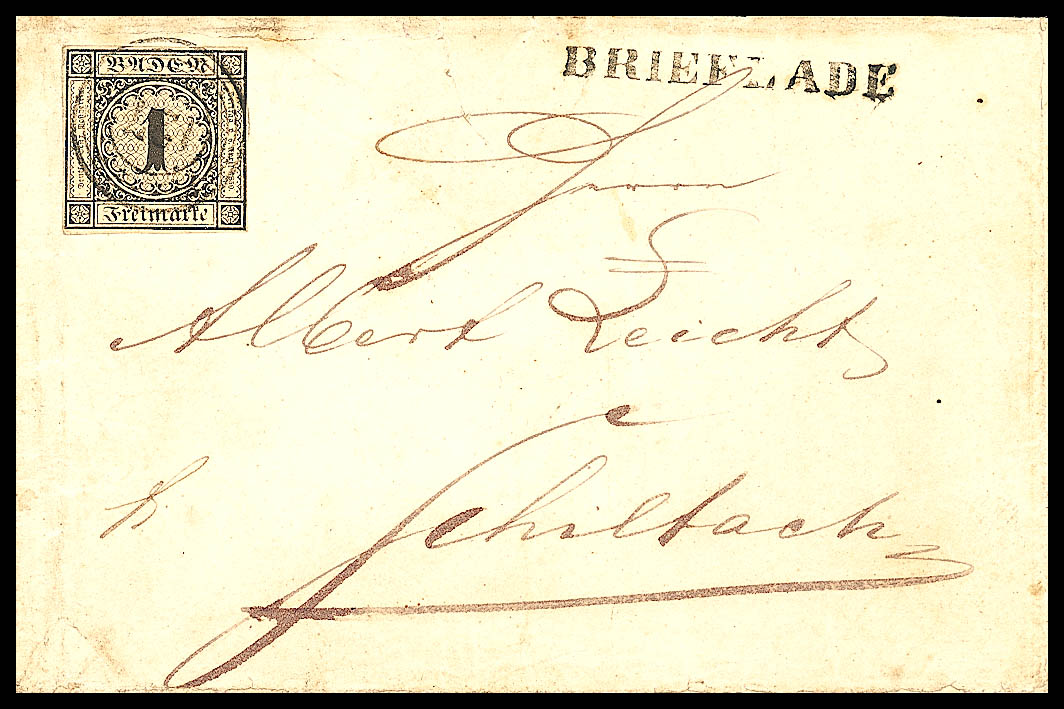 BADEN
1
Freimarke
BRIEFLADE
Herrn
Albert Leicht
Schiltach